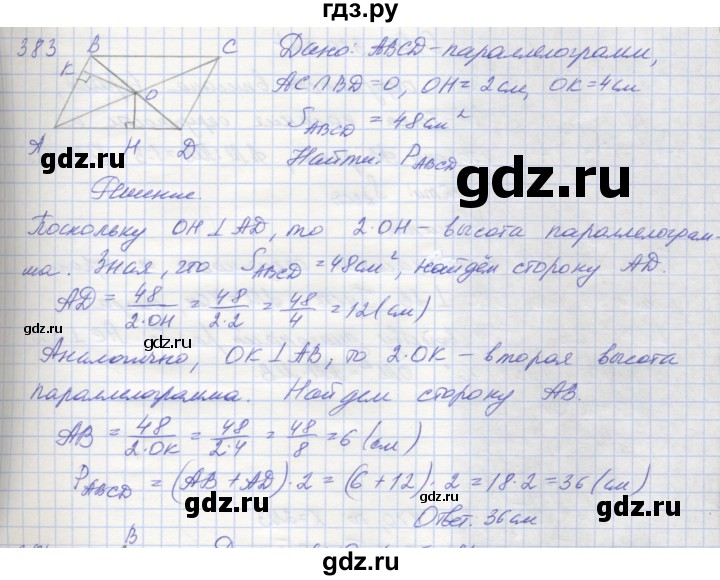 гдз.ру
383 B C Дано: ABCD-параллелограмм,
K O AC∩BD=O, OH=2см, OK=4см
S_ABCD = 48см²
A H D Найти: P_ABCD
gdz.ru gdz.ru
Решение.
Поскольку OH⊥AD, то 2·OH – высота параллелограм-
ма. Зная, что S_ABCD = 48см², найдём сторону AD.
gdz.ru gdz.ru
AD = 48/2·OH = 48/2·2 = 48/4 = 12(см)
gdz.ru gdz.ru
Аналогично, OK⊥AB, то 2·OK – вторая высота
параллелограмма. Найдем сторону AB.
gdz.ru gdz.ru
AB = 48/2·OK = 48/2·4 = 48/8 = 6(см)
P_ABCD = (AB+AD)·2 = (6+12)·2 = 18·2 = 36(см)
gdz.ru gdz.ru
Ответ. 36см
B
gdz.ru gdz.ru